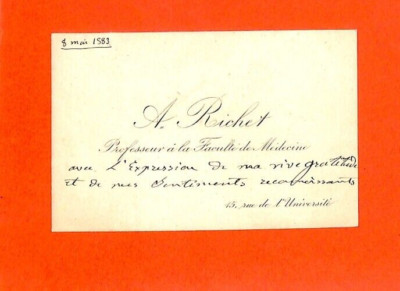 8 mai 1883
A. Richet
Professeur à la Faculté de Médecine
avec l'Expression de ma vive gratitude
et de mes Sentiments reconnaissants
15, rue de l'Université